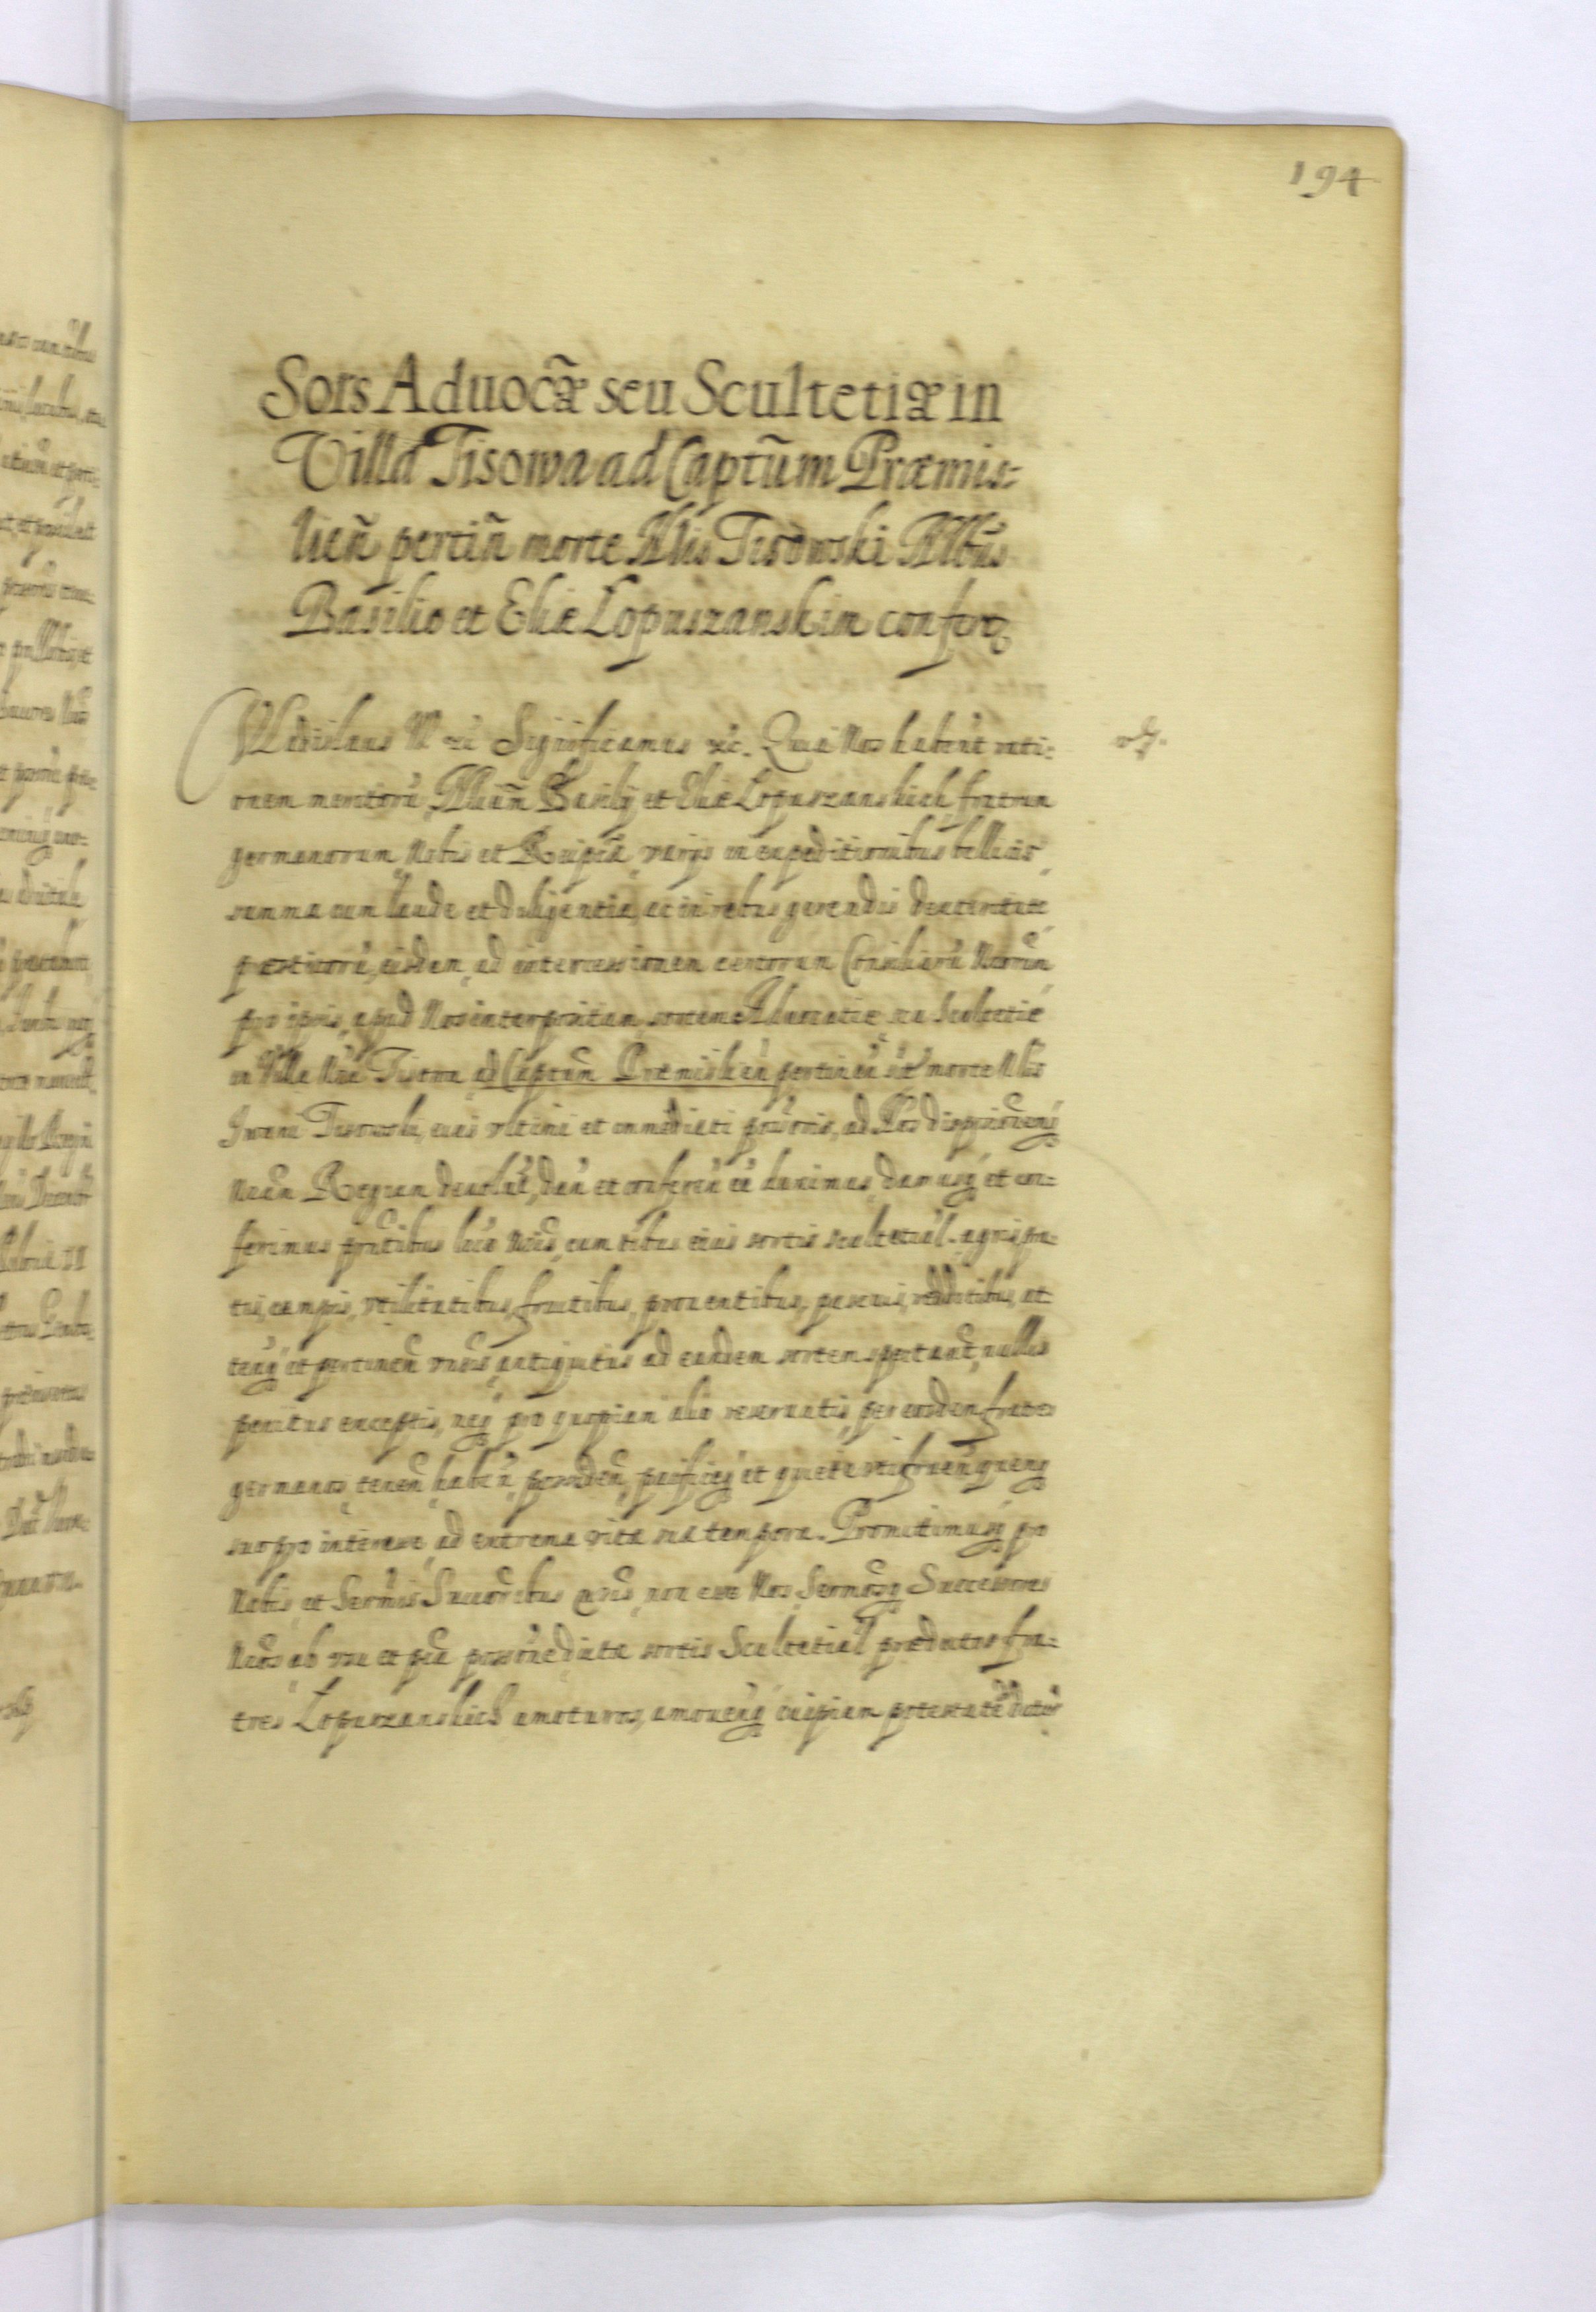 194
Sors Aduocãæ seu Scultetiæ in
Villa Tisowa ad Captũm Præmis-
lien̄ pertin̄ morte Nlis Tisowski Nlbus
Basilio et Eliæ Lopuszanskim confertur
Vladislaus IV etc Significamus etc. Quia Nos habita rati-
onem meritorũ Nlium Basilij et Eliæ Lopuszanskich fratrum
germanorum Nobis et Reipcæ varijs in expeditionibus bellicis
summa cum laude et diligentia, ac in rebus gerendis dexteritate
præstitorũ, eisdem ad intercessionem certorum Consiliariũ Nrorum
pro ipsis apud Nos interpositam sortem Aduocatiæ seu Scultetiæ
in Villa Nra Tisowa ad Captum Præmislien̄ pertinen̄ morte Nlis
Iwani Tisowski, eius vltimi et immediati possoris, ad Nos dispositionemq
Nram Regiam deuolut̃, dan̄ et conferen̄ ee duximus, damusq et con-
ferimus præntibus lris Nris, cum oibus eius sortis scultetial. agris pra-
tis, campis, vtilitatibus, fructibus, prouentibus, pascuis, redditibus, at-
tenq et pertinen̄ vniuersis antiquitus ad eandem sortem spectanĩ, nullis
penitus exceptis, neq pro quopiam alio reseruatis, per eosdem fratres
germanos, tenen̄ haben̄ possiden̄, pacificeq et quiete vtifruen̄ quemq
suo pro interesse ad extrema vitæ suæ tempora. Promittimusq pro
Nobis et Sermis Successoribus Nris, non esse Nos Sermosq Successores
Nros ab vsu et pca possone dictæ sortis Scultetial prædictos fra-
tres Lopuszanskich amoturos, amouendiq cuipiam potestatẽ daturos